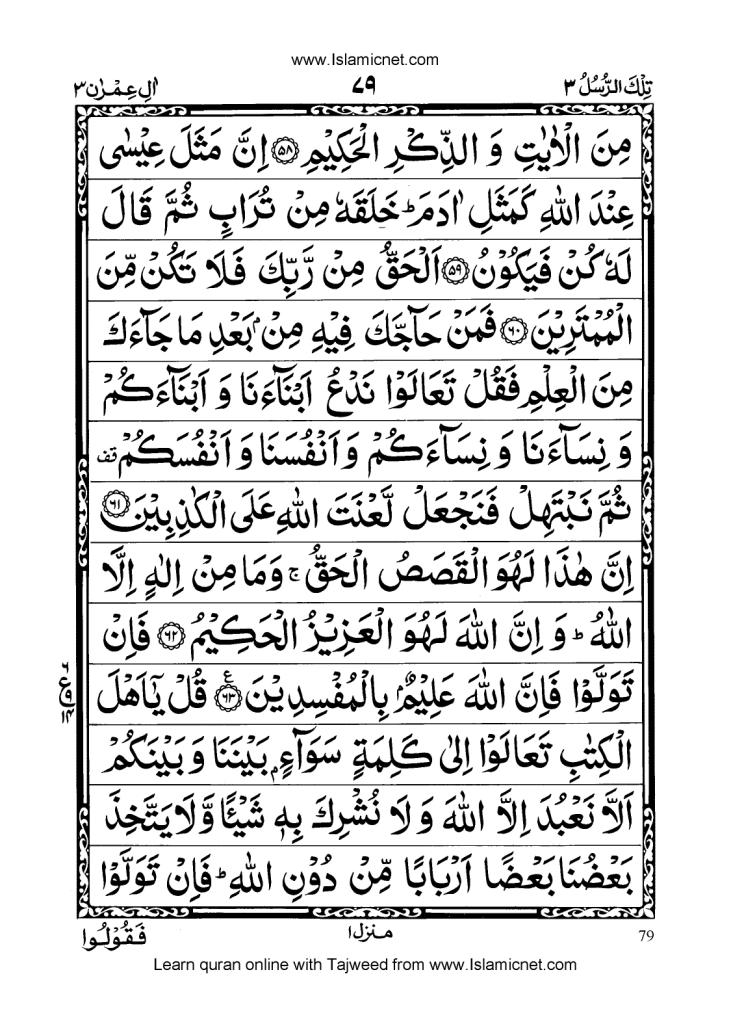 www.Islamicnet.com
تِلْكَ الرُّسُلُ ٣ ٧٩ اٰلِ عِمْرٰن ٣
مِنَ الْاٰيٰتِ وَ الذِّكْرِ الْحَكِيْمِ ۝۵۸ اِنَّ مَثَلَ عِيْسٰى
عِنْدَ اللّٰهِ كَمَثَلِ اٰدَمَ ؕ خَلَقَهٗ مِنْ تُرَابٍ ثُمَّ قَالَ
لَهٗ كُنْ فَيَكُوْنُ ۝۵۹ اَلْحَقُّ مِنْ رَّبِّكَ فَلَا تَكُنْ مِّنَ
الْمُمْتَرِيْنَ ۝۶۰ فَمَنْ حَآجَّكَ فِيْهِ مِنْۢ بَعْدِ مَا جَآءَكَ
مِنَ الْعِلْمِ فَقُلْ تَعَالَوْا نَدْعُ اَبْنَآءَنَا وَ اَبْنَآءَكُمْ
وَ نِسَآءَنَا وَ نِسَآءَكُمْ وَ اَنْفُسَنَا وَ اَنْفُسَكُمْ قف
ثُمَّ نَبْتَهِلْ فَنَجْعَلْ لَّعْنَتَ اللّٰهِ عَلَى الْكٰذِبِيْنَ ۝۶۱
اِنَّ هٰذَا لَهُوَ الْقَصَصُ الْحَقُّ ۚ وَمَا مِنْ اِلٰهٍ اِلَّا
اللّٰهُ ؕ وَ اِنَّ اللّٰهَ لَهُوَ الْعَزِيْزُ الْحَكِيْمُ ۝۶۲ فَاِنْ
تَوَلَّوْا فَاِنَّ اللّٰهَ عَلِيْمٌۢ بِالْمُفْسِدِيْنَ ۝۶۳ ع قُلْ يٰۤاَهْلَ
۶ ع ۹ ۱۴
الْكِتٰبِ تَعَالَوْا اِلٰى كَلِمَةٍ سَوَآءٍۭ بَيْنَنَا وَ بَيْنَكُمْ
اَلَّا نَعْبُدَ اِلَّا اللّٰهَ وَ لَا نُشْرِكَ بِهٖ شَيْـًٔا وَّلَا يَتَّخِذَ
بَعْضُنَا بَعْضًا اَرْبَابًا مِّنْ دُوْنِ اللّٰهِ ؕ فَاِنْ تَوَلَّوْا
79 منزل ١ فَقُوْلُوا
Learn quran online with Tajweed from www.Islamicnet.com